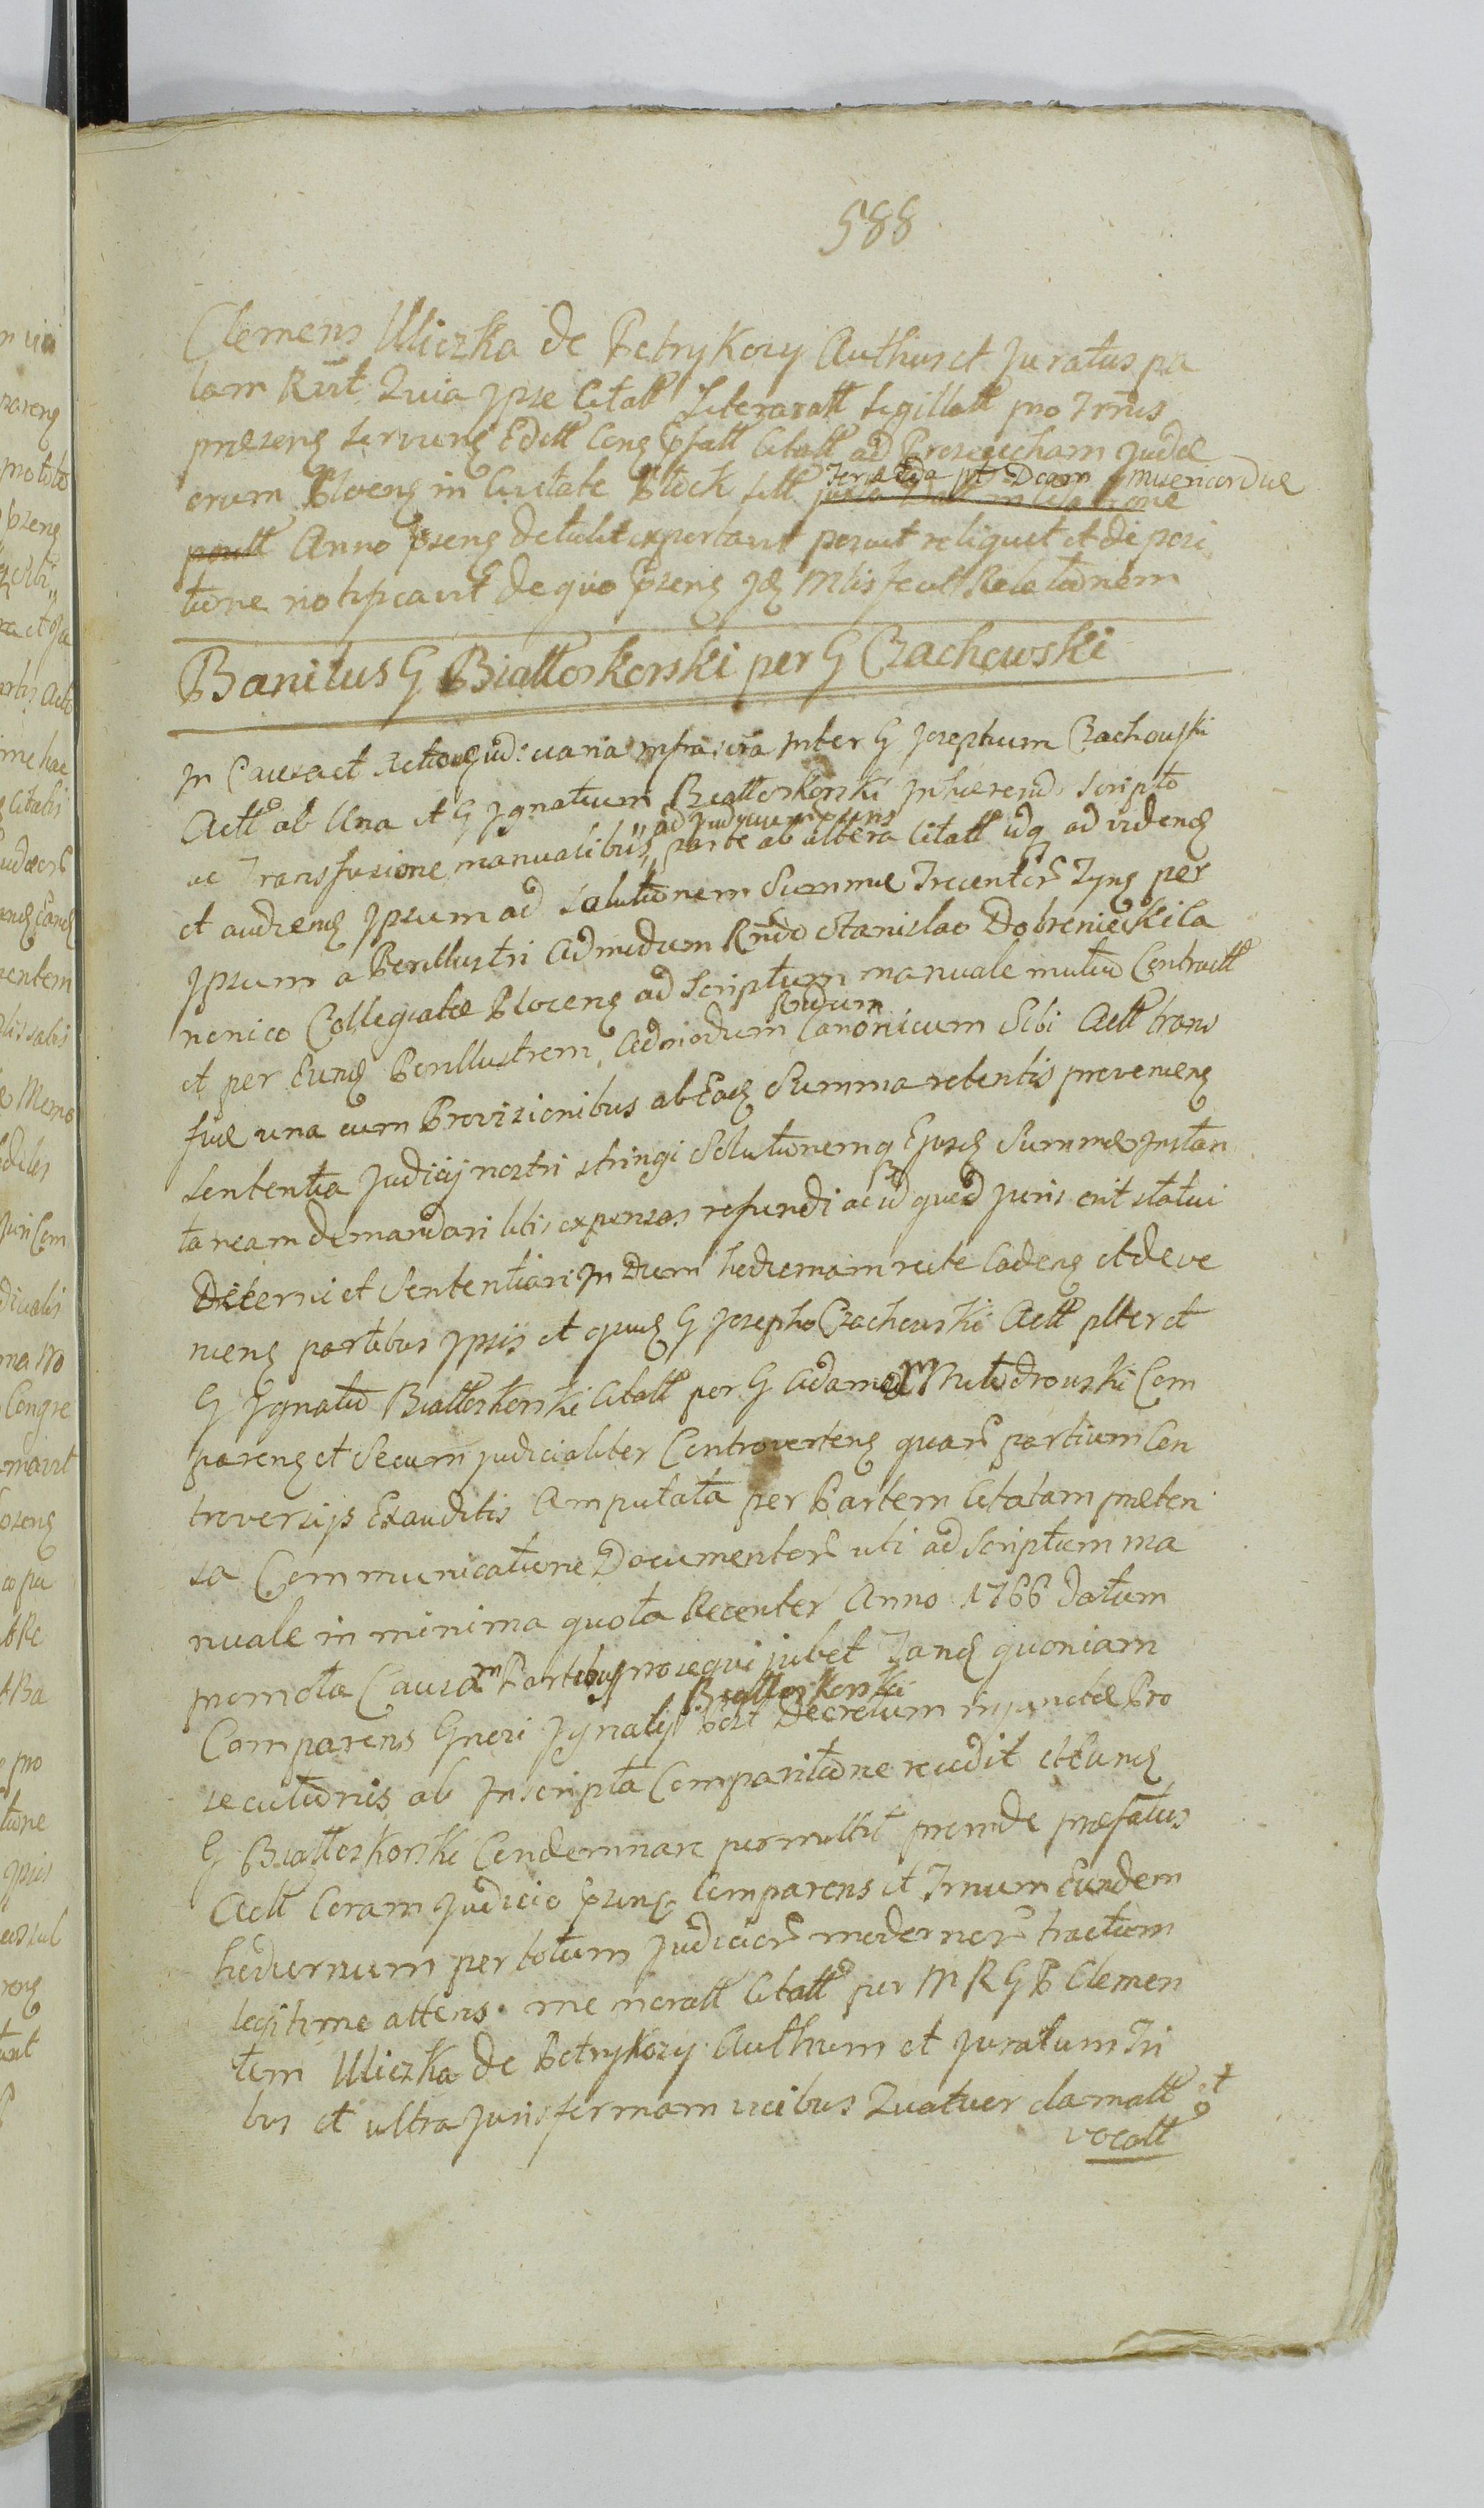 588
Clemens Uliczka de Petrykozy Authus et Juratus pa
lam Rt Quia Ipse Citatt Literaratt Sigillatt pro Trnis
præseng servieng Edctt Cong Citatt ad Proseucham Judæ
orum Ploceng in Civitate Płock sitt feria 2da pt Dcam Misericordiæ
Anno Pseng detulit exportavit posuit reliquit et de posi
tione notificavit de quo Pseng Mtis fecit Relationem
Banitus G Białłoskorski per G Czachowski
In Causa et Actione judiciaria infrascra Inter G Josephum Czachowski
Actt ab Una et G Ignatium Białłoskorski Inhærendo Scripto
ac Transfusione manualibus parte ab altera Citatt idq ad videnq
et audienq Ipsum ad Solutionem Summæ Trecentor per
Ipsum a Perillustri Admodum Rndo Stanislao Dobreniecki Ca
nonico Collegiatæ Ploceng ad Scriptum manuale mutuo Contractt
et per Eunq Perillustrem Admodum Rndum Canonicum Sibi Actt trans
fusæ una cum Provisionibus ab Eadq Summa retentis provenieng
Sententia Judicij nostri stringi Solutionemq Ejusq Summæ Instan
taneam demandari litis expensas refundi ac id quod Juris erit statui
Decerni et Sententiari In Dum hodiernam recte Cadeng et deve
nieng partibus Ipsis et quidq G Josepho Czachowski Actt plter et
G Ignatio Białłoskorski Citatt per G Adamum Com
pareng et Secum judicialiter Controverteng quar partium Con
troversijs Exauditis Amputata per Partem Citatam præten
sa Communicatione Documentor uti ad Scriptum ma
nuale in minima quota Recenter Anno 1766 datum
promota Causam Partibus prosequi jubet Tanq quoniam
Comparens Gnosi Ignatij Białłoskorski Post Decretum injunctæ Pro
secutionis ab Inscripta Comparitione recedit et Eunq
G Białłoskorski Condemnare permittit proinde præfatus
Actt Coram Judicio Pseng Comparens et Trnum Eundem
hodiernum per totum Judicior modernor tractum
legitime attens me moratt Citatt per M R G P Clemen
tem Uliczka de Petrykozy Authum et Juratum Tri
bus et ultra Juris formam vicibus Quatuor clamatt et
vocatt